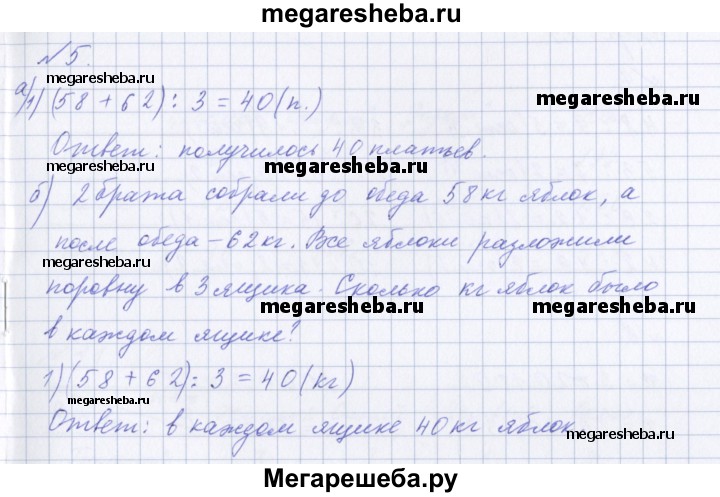 megaresheba.ru
№5.
megaresheba.ru
а) 1) (58 + 62) : 3 = 40 (п.)
megaresheba.ru
Ответ: получилось 40 платьев.
megaresheba.ru
б) 2 бража собрали до обеда 58 кг яблок, а
после обеда – 62 кг. Все яблоки разложили
megaresheba.ru
поровну в 3 ящика. Сколько кг яблок было
megaresheba.ru
megaresheba.ru
в каждом ящике?
1) (58 + 62) : 3 = 40 (кг)
megaresheba.ru
Ответ: в каждом ящике 40 кг яблок.
megaresheba.ru
Мегарешеба.ру